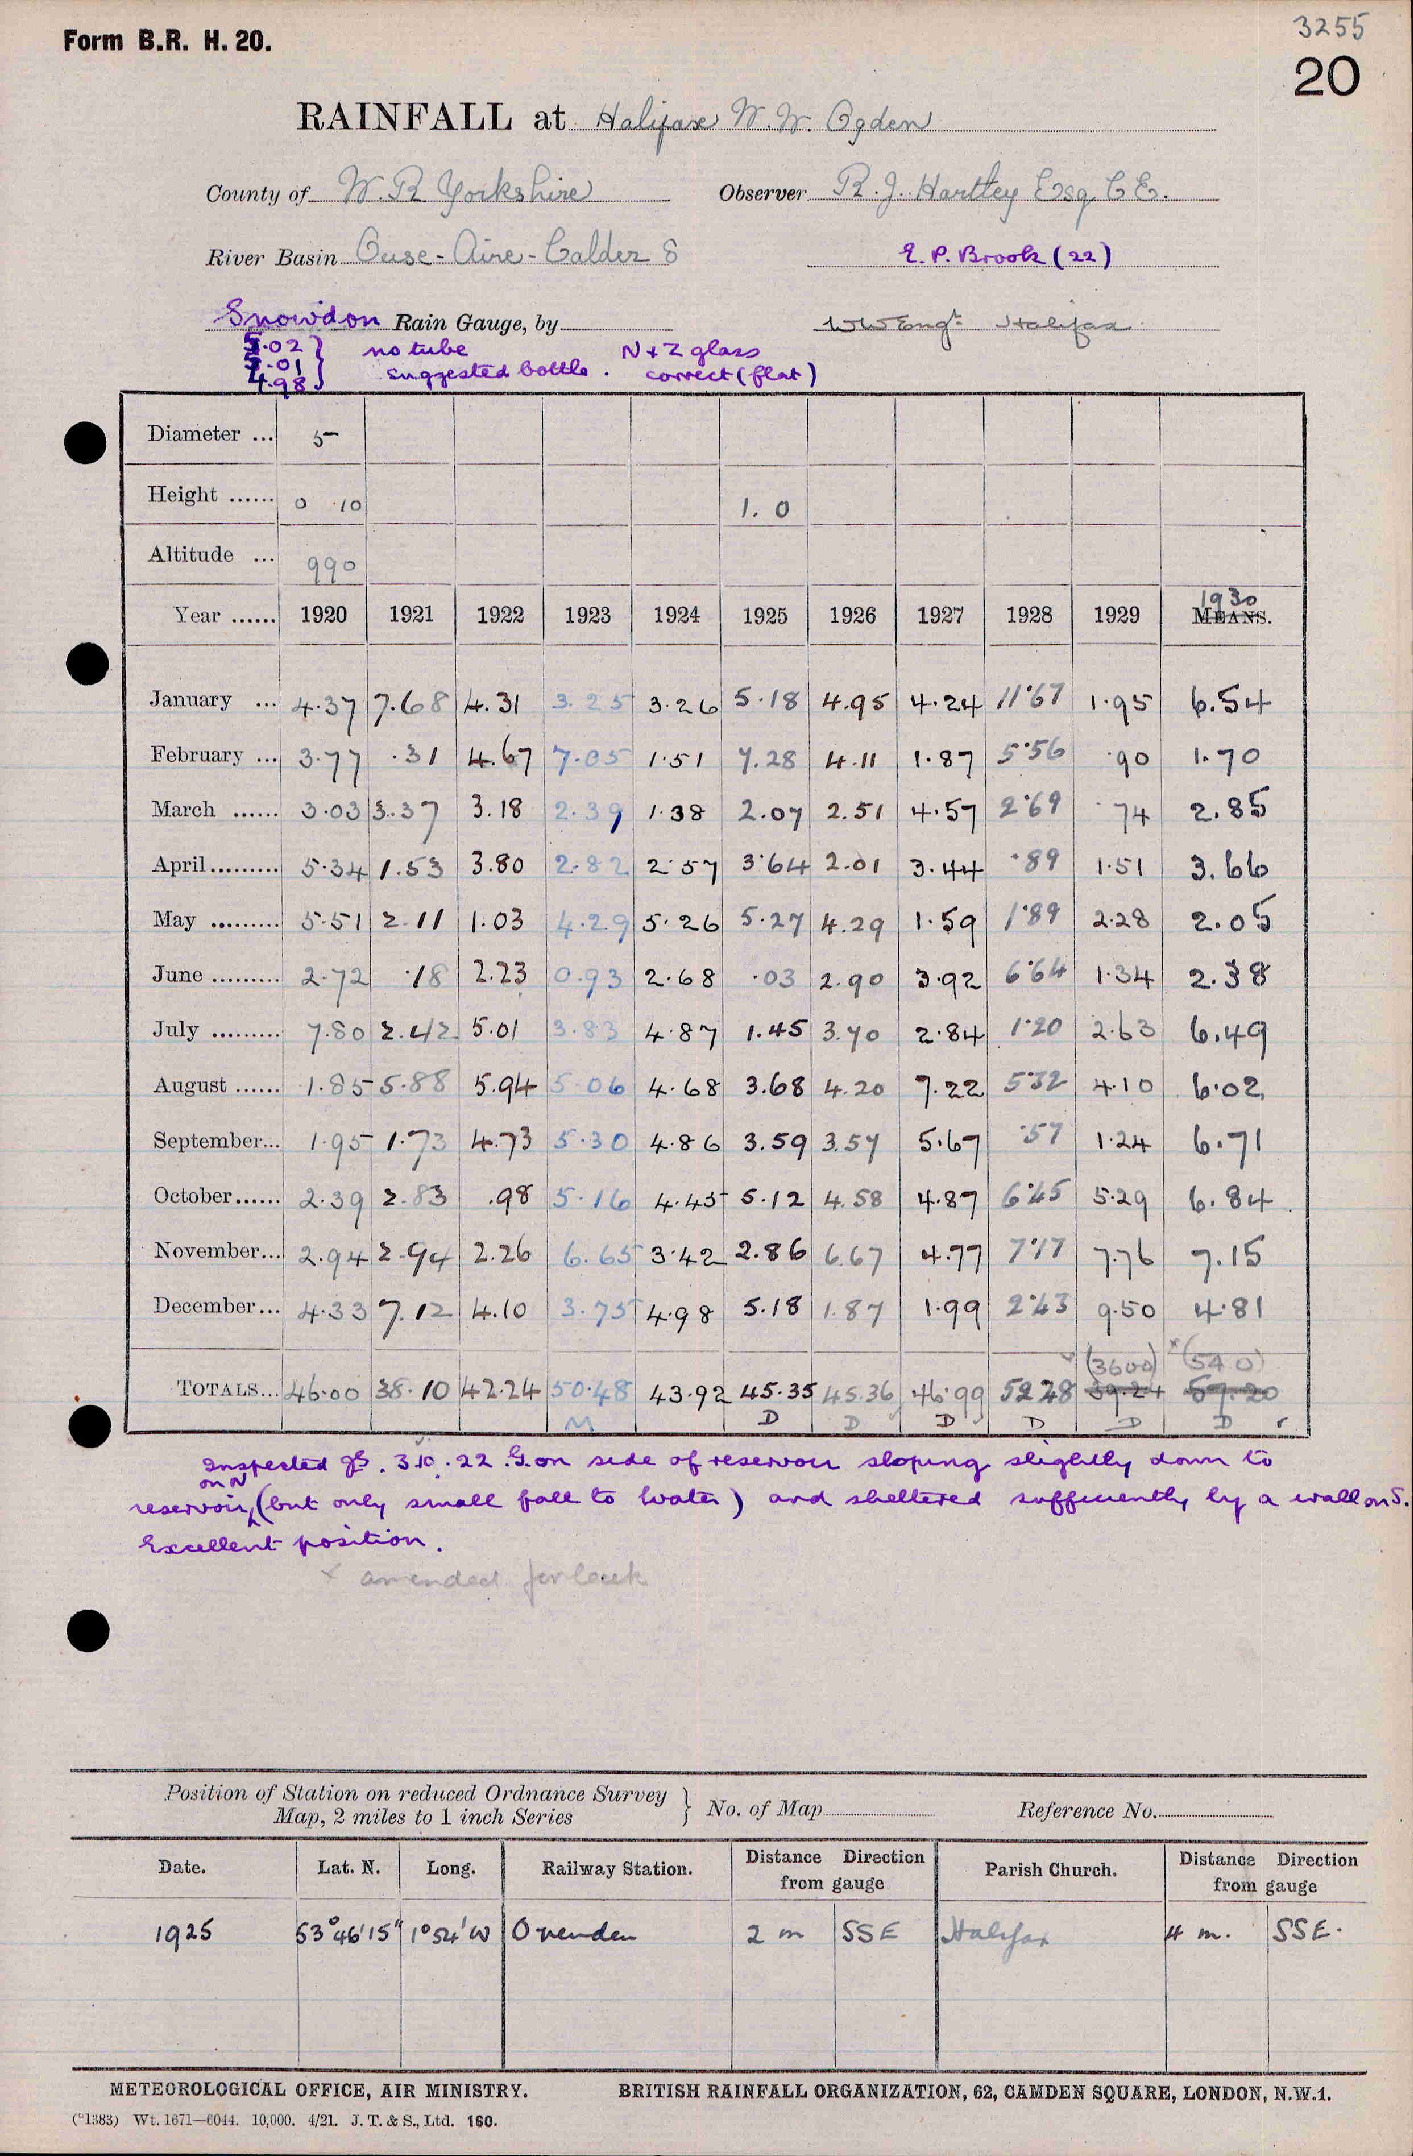 3255
Form B.R. H. 20.
20
RAINFALL at Halifax W.W. Ogden
County of W.R Yorkshire Observer R.J. Hartley Esq C E.
River Basin Ouse - Aire - Calder 8 E. P. Brook (22)
Snowdon Rain Gauge, by W W Engr. Halifax
5.02 } no tube N & Z glass
5.01 } suggested bottle. correct (flat)
4.98 }
Diameter ... 5
Height ...... 0 10 1. 0
Altitude ... 990
1930
Year ...... 1920 1921 1922 1923 1924 1925 1926 1927 1928 1929 MEANS.
January ... 4.37 7.68 4.31 3.25 3.26 5.18 4.95 4.24 11.67 1.95 6.54
February ... 3.77 .31 4.67 7.05 1.51 7.28 4.11 1.87 5.56 .90 1.70
March ...... 3.03 3.37 3.18 2.39 1.38 2.07 2.51 4.57 2.69 .74 2.85
April......... 5.34 1.53 3.80 2.82 2.57 3.64 2.01 3.44 .89 1.51 3.66
May ......... 5.51 2.11 1.03 4.29 5.26 5.27 4.29 1.59 1.89 2.28 2.05
June ......... 2.72 .18 2.23 0.93 2.68 .03 2.90 3.92 6.64 1.34 2.38
July ......... 7.80 2.42 5.01 3.83 4.87 1.45 3.70 2.84 1.20 2.63 6.49
August ...... 1.85 5.88 5.94 5.06 4.68 3.68 4.20 7.22 5.32 4.10 6.02
September... 1.95 1.73 4.73 5.30 4.86 3.59 3.57 5.67 .57 1.24 6.71
October...... 2.39 2.83 .98 5.16 4.45 5.12 4.58 4.87 6.45 5.29 6.84
November... 2.94 2.94 2.26 6.65 3.42 2.86 6.67 4.77 7.17 7.76 7.15
December... 4.33 7.12 4.10 3.75 4.98 5.18 1.87 1.99 2.63 9.50 4.81
(3600) x (54 0)
TOTALS... 46.00 38.10 42.24 50.48 43.92 45.35 45.36 46.99 52.28 39.24 57.20
M D D D D D D
Inspected 3.10.22. G. on side of reservoir sloping slightly down to
on N
reservoir, (but only small fall to water) and sheltered sufficiently by a wall on S.
Excellent position.
x amended for leak
Position of Station on reduced Ordnance Survey } No. of Map Reference No.
Map, 2 miles to 1 inch Series
Date. Lat. N. Long. Railway Station. Distance Direction from gauge Parish Church. Distance Direction from gauge
1925 53°46'15" 1°54'W Ovenden 2 m SSE Halifax 4 m. SSE.
METEOROLOGICAL OFFICE, AIR MINISTRY. BRITISH RAINFALL ORGANIZATION, 62, CAMDEN SQUARE, LONDON, N.W.1.
(*1383) Wt. 1671—6044. 10,000. 4/21. J. T. & S., Ltd. 160.